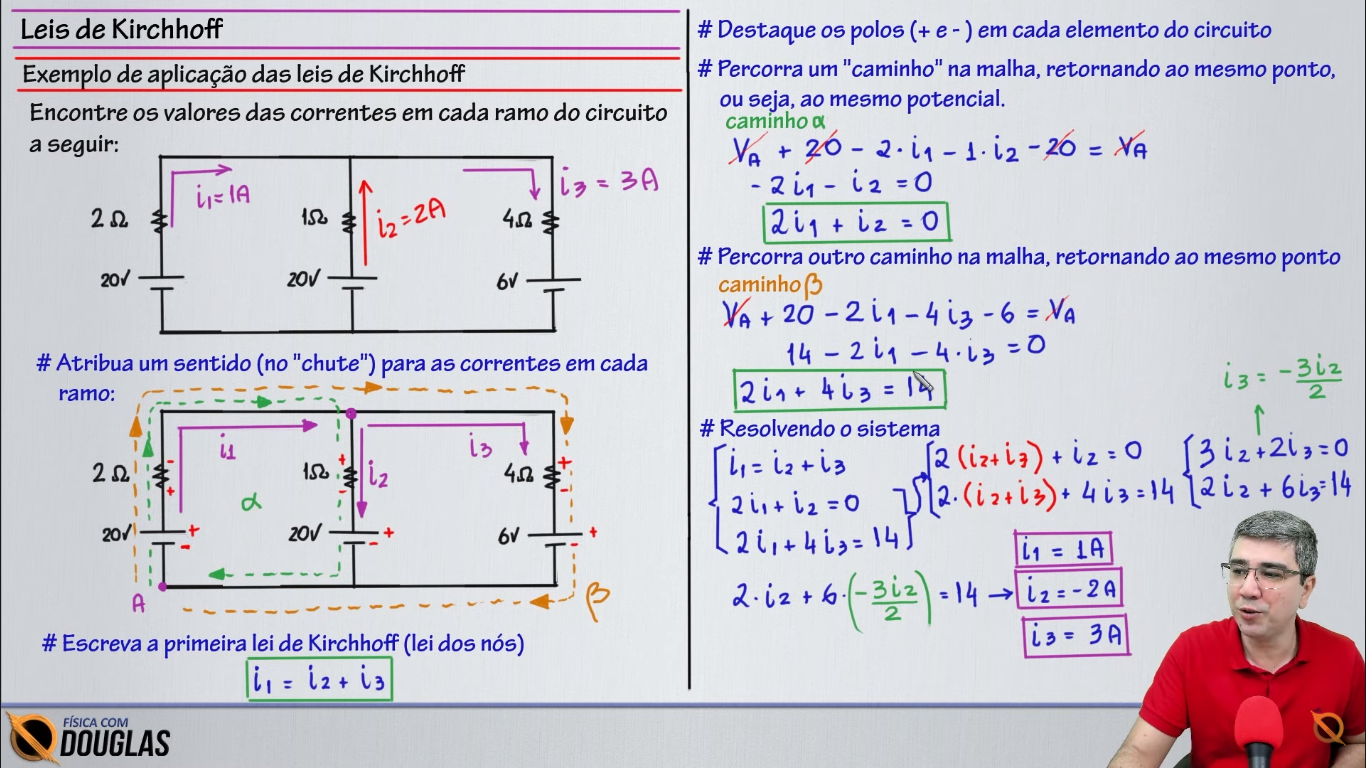 Leis de Kirchhoff
Exemplo de aplicação das leis de Kirchhoff
Encontre os valores das correntes em cada ramo do circuito
a seguir:
i₁=1A
i₂=2A
i₃ = 3A
2 Ω
1Ω
4Ω
20V
20V
6V
# Atribua um sentido (no "chute") para as correntes em cada
ramo:
i₁
i₃
2 Ω
- +
1Ω
+ -
i₂
4Ω
+ -
α
20V
+ -
20V
+ -
6V
+ -
A
β
# Escreva a primeira lei de Kirchhoff (lei dos nós)
i₁ = i₂ + i₃
FÍSICA COM
DOUGLAS
# Destaque os polos (+ e - ) em cada elemento do circuito
# Percorra um "caminho" na malha, retornando ao mesmo ponto,
ou seja, ao mesmo potencial.
caminho α
V_A + 20 - 2·i₁ - 1·i₂ - 20 = V_A
- 2i₁ - i₂ = 0
2i₁ + i₂ = 0
# Percorra outro caminho na malha, retornando ao mesmo ponto
caminho β
V_A + 20 - 2i₁ - 4i₃ - 6 = V_A
14 - 2i₁ - 4·i₃ = 0
2i₁ + 4i₃ = 14
i₃ = -3i₂/2
# Resolvendo o sistema
i₁ = i₂ + i₃
2i₁ + i₂ = 0
2i₁ + 4i₃ = 14
2(i₂+i₃) + i₂ = 0
2·(i₂+i₃) + 4i₃ = 14
3i₂ + 2i₃ = 0
2i₂ + 6i₃ = 14
2·i₂ + 6·(-3i₂/2) = 14 →
i₁ = 1A
i₂ = -2A
i₃ = 3A